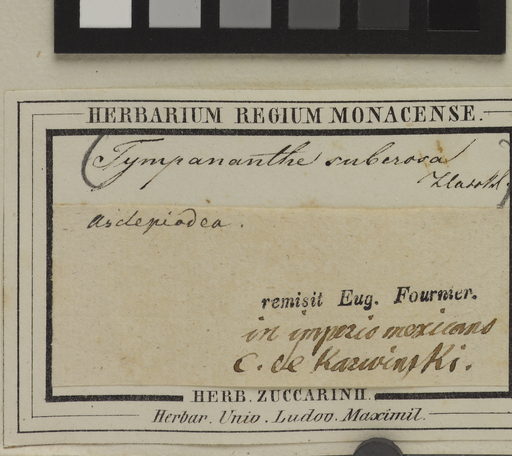 HERBARIUM REGIUM MONACENSE.
(Tympananthe suberosa
Hasskl.)
Asclepiadea.
remisit Eug. Fournier.
in imperio mexicano
C. de Karwinski.
HERB. ZUCCARINII.
Herbar. Univ. Ludov. Maximil.